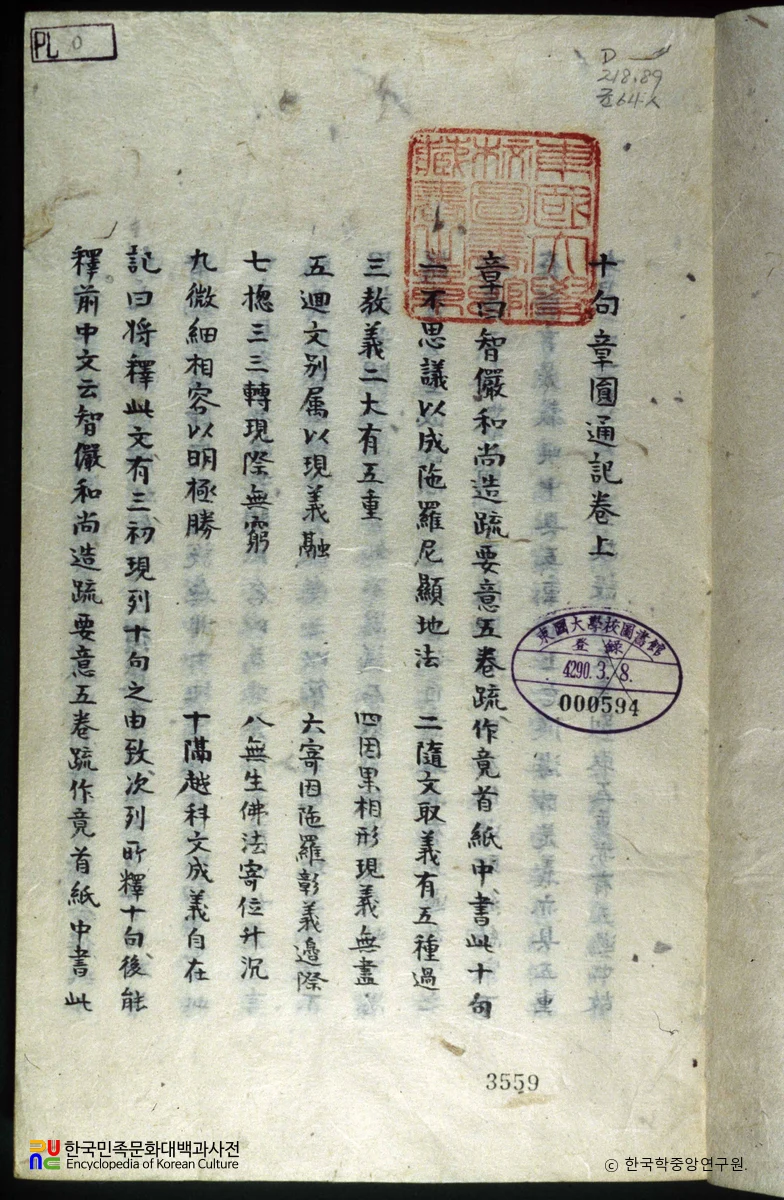 PL 0
D
218.89
균64ㅅ
東國大學校圖書館藏書之印
十句章圓通記卷上
章曰智儼和尚造䟽要意五卷䟽作竟首紙中書此十句
一不思議以成陁羅尼顯地法 二隨文取義有五種過
三教義二大有五重 四因果相形現義無盡
五迴文別属以現義融 六寄因陁羅彰義邊際
七揔三三轉現際無窮 八無生佛法寄位升沉
九微細相容以明極勝 十隔越科文成義自在
記曰将釋此文有三初現列十句之由致次列所釋十句後能
釋前中文云智儼和尚造䟽要意五卷䟽作竟首紙中書此
東國大學校圖書館
登錄
4290.3.8.
000594
3559
한국민족문화대백과사전
Encyclopedia of Korean Culture
ⓒ 한국학중앙연구원.